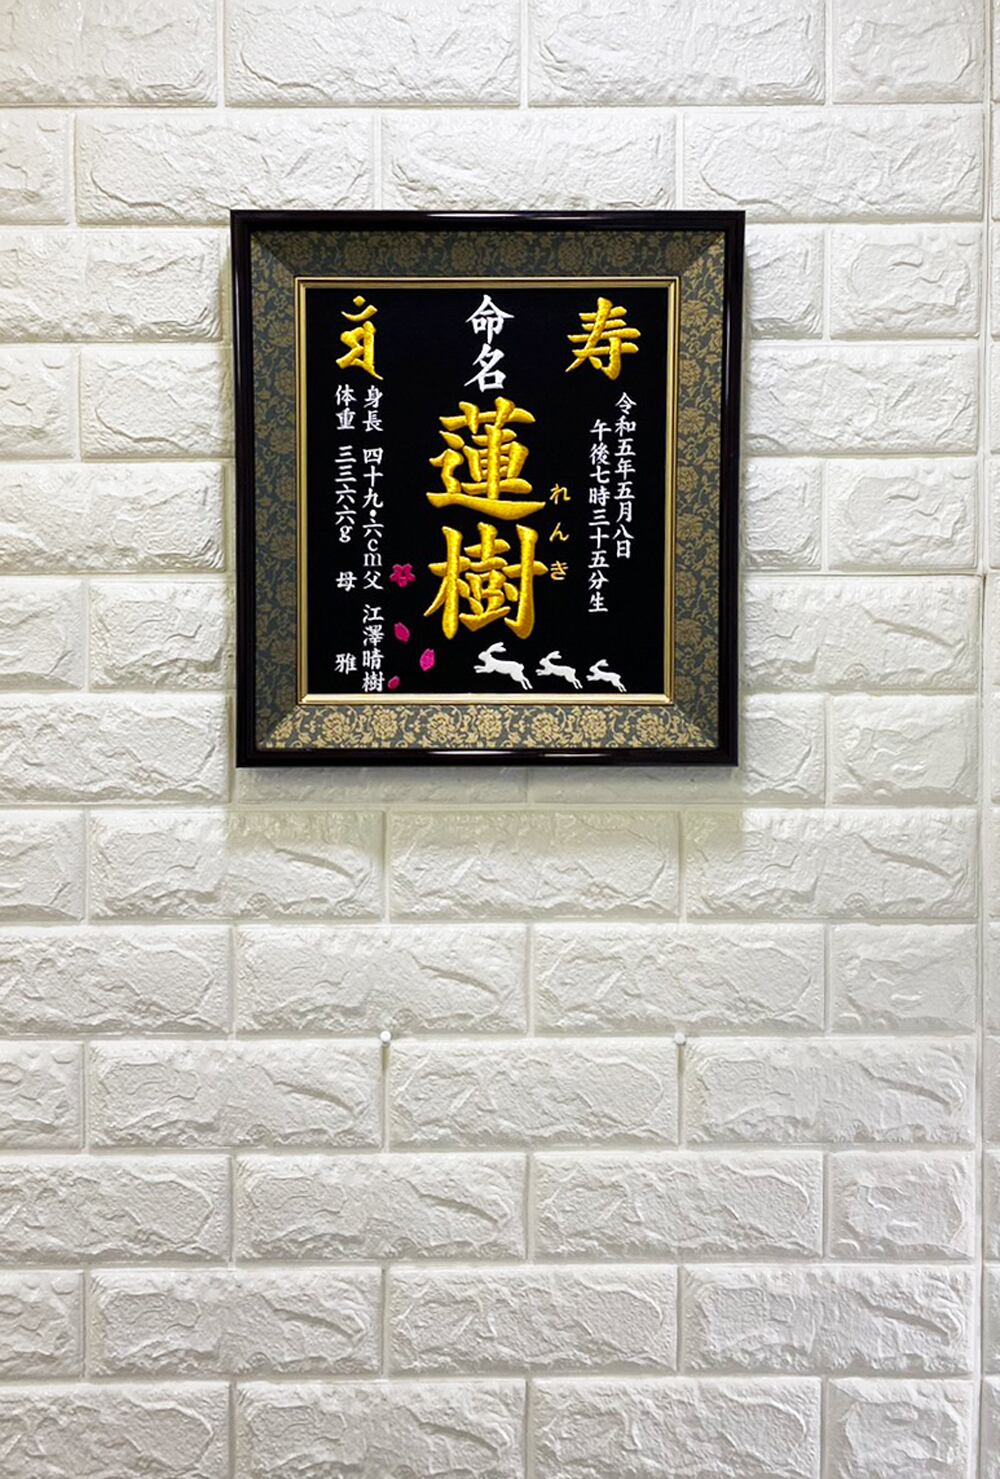 寿
令和五年五月八日
午後七時三十五分生
命名
蓮樹
れんき
身長 四十九・六cm
体重 三三六六g
父 江澤晴樹
母 雅